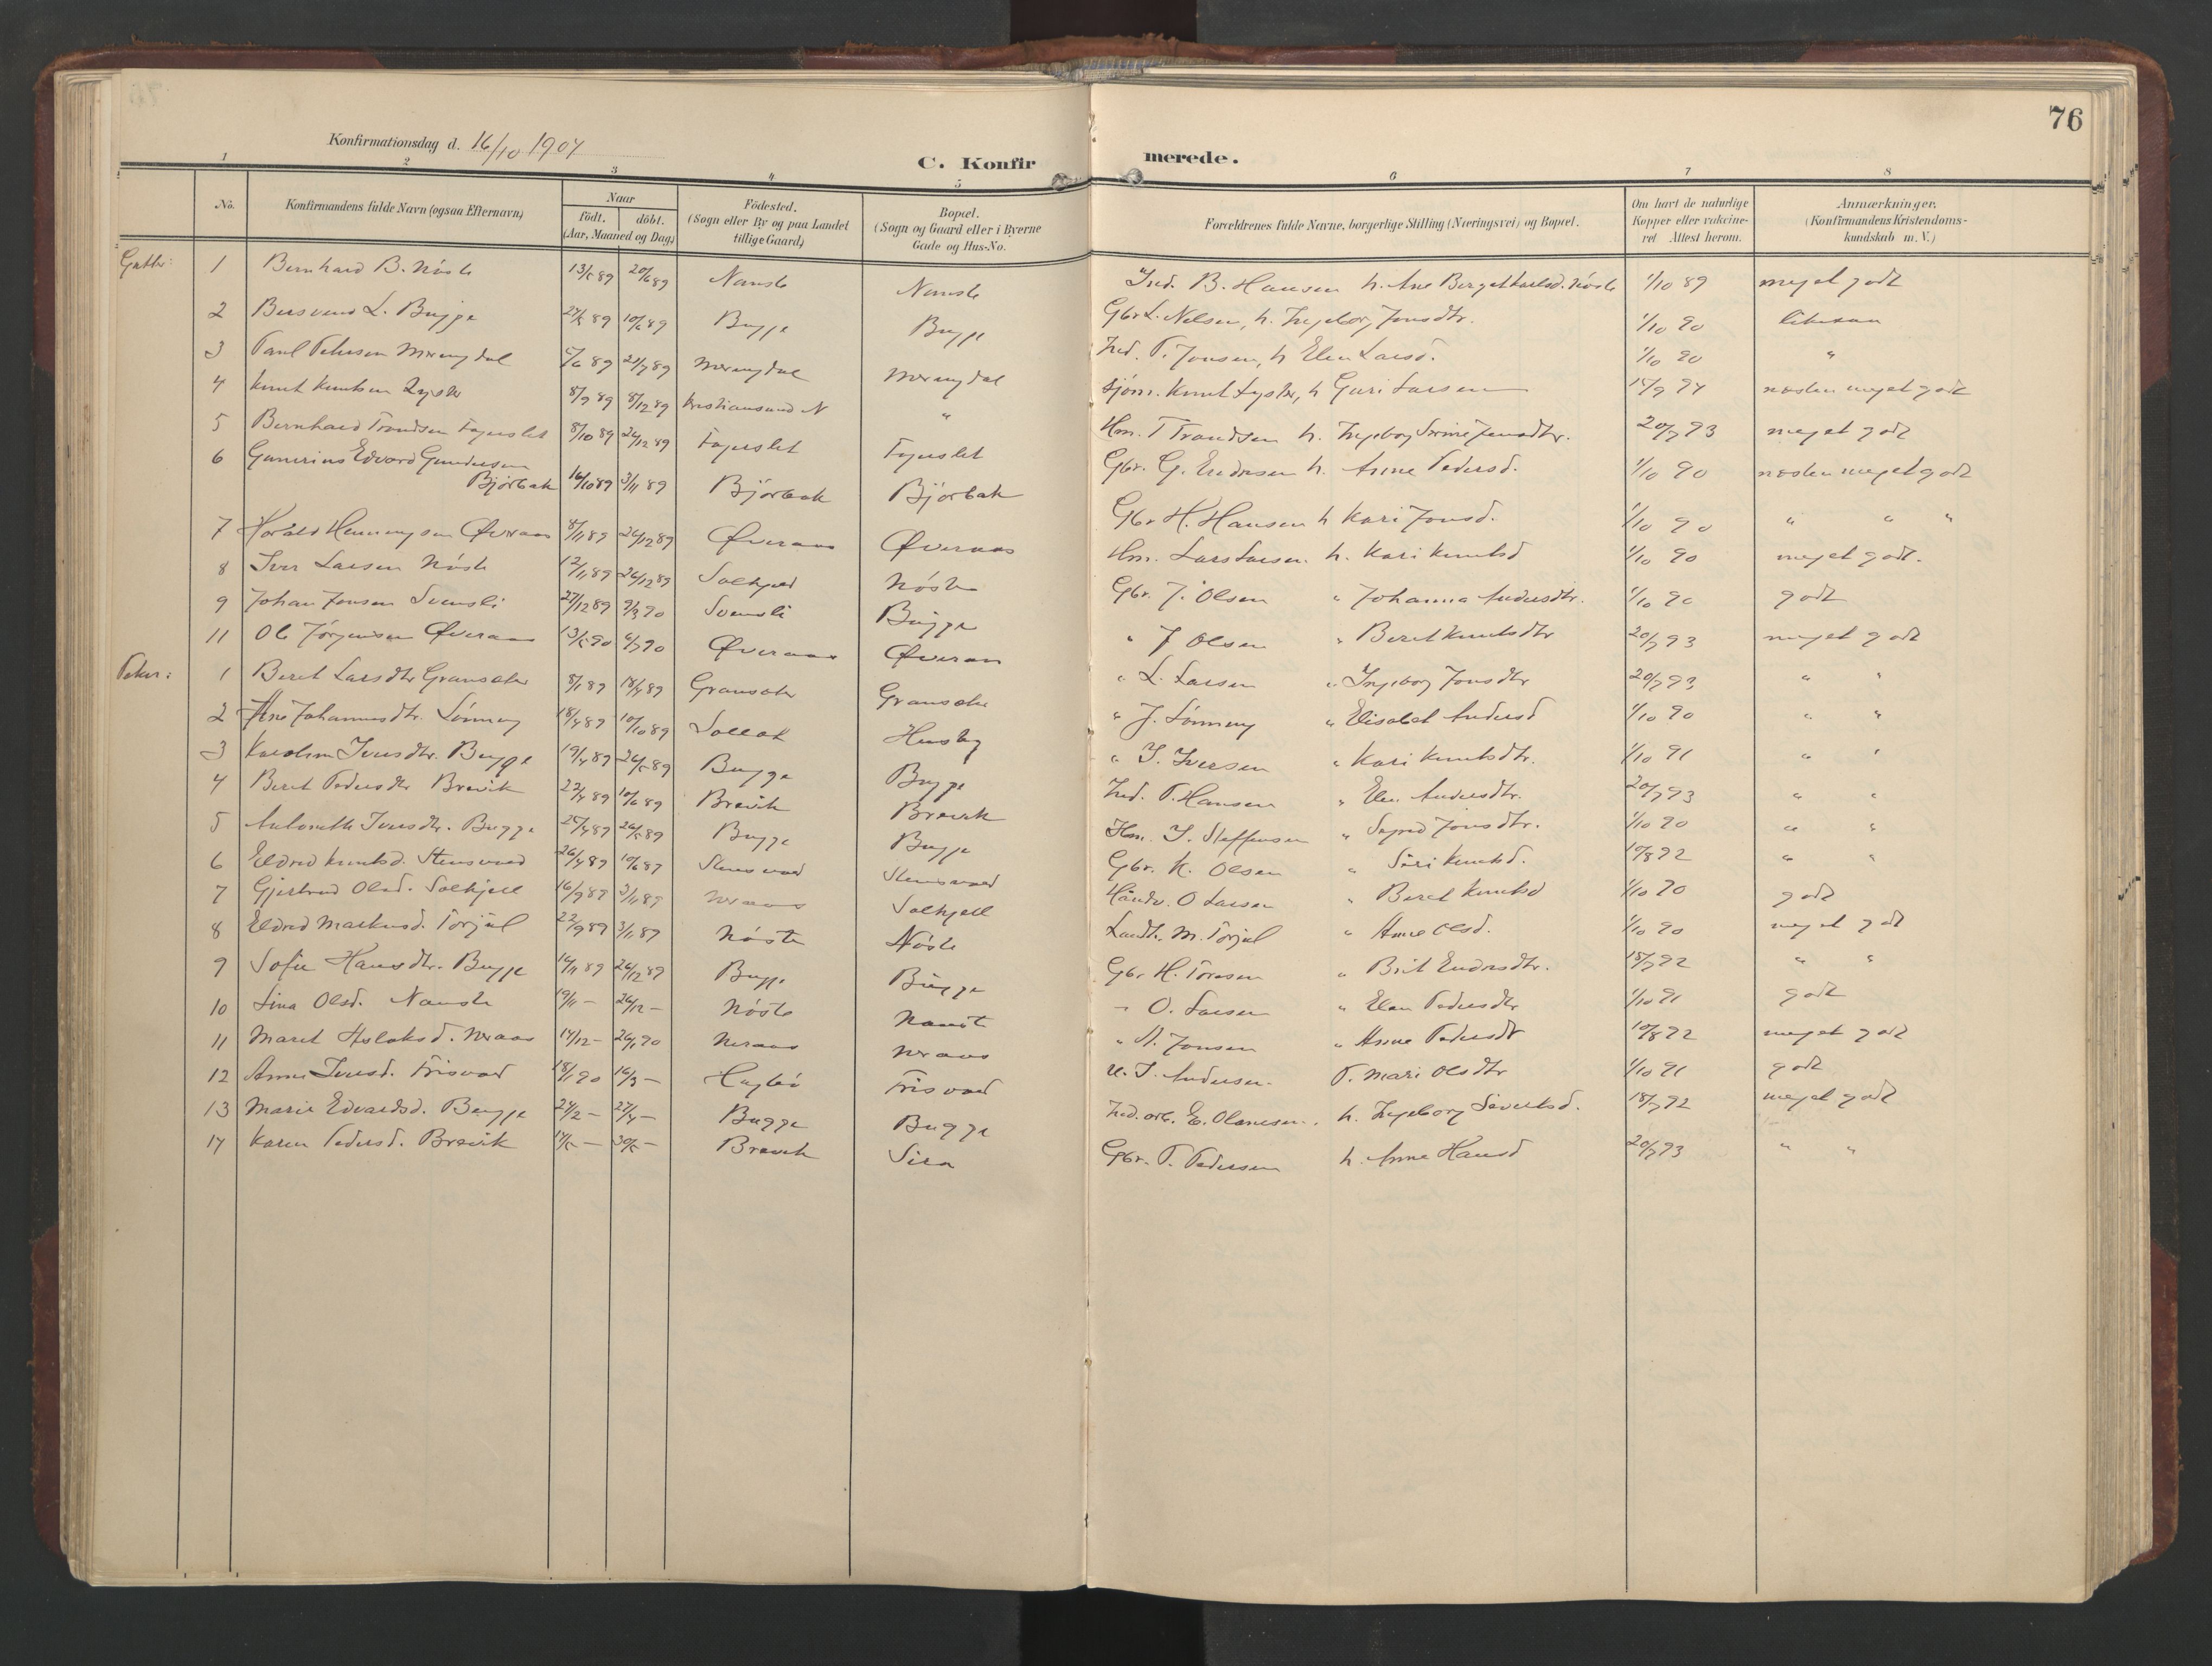 76
Konfirmationsdag d. 16/10 1904
C. Konfirmerede.
1 2 3 4 5 6 7 8
No. Konfirmandens fulde Navn (ogsaa Efternavn) Naar födt. döbt. (Aar, Maaned og Dag.) Födested. (Sogn eller By og paa Landet tillige Gaard.) Bopæl. (Sogn og Gaard eller i Byerne Gade og Hus-No. Forældrenes fulde Navne, borgerlige Stilling (Næringsvei) og Bopæl. Om havt de naturlige Kopper eller vakcineret Attest herom. Anmærkninger. (Konfirmandens Kristendomskundskab m. V.)
Gutter: 1 Bernhard B. Nöste 13/5 89 20/6 89 Nauste Nauste Ind. B. Hansen h. Ane Berget Karlsd. Nöste 1/10 89 meget godt
2 L. Bugge 27/5 89 10/6 89 Bugge Bugge Gbr L. Nilsen, h. Ingeborg Jonsdtr. 1/10 90 likesaa
3 Paul Petersen 89 21/7 89 Ind. P. Jonsen, h Elen Larsd. 1/10 90 "
4 Knut Knutsen Lyster 8/9 89 8/12 89 Kristiansund N " Sjöm. Knut Lyster, h Guri Larsen 94 næsten meget godt
5 Bernhard Trondsen Fagerslet 8/10 89 26/12 89 Fagerslet Fagerslet Hm. T Trondsen h. Ingeborg 20/7 93 meget godt
6 Gunerius Edvard Gundersen Björbak 16/10 89 3/11 89 Björbak Björbak Gbr. G. Endresen h. Anne Pedersd. 1/10 90 næsten meget godt
7 Harald Henningsen Øveraas 8/11 89 26/12 89 Øveraas Øveraas Gbr H. Hansen h Kari Jonsd. 1/10 90 " " "
8 Iver Larsen Nöste 12/11 89 26/12 89 Solkjel Nöste Hm. Lars Larsen. h. Kari Knutsd 1/10 90 meget godt.
9 Johan Jonsen Svensli 27/12 89 9/3 90 Svensli Bugge Gbr. J. Olsen " Johanna Andersdtr. 1/10 90 godt
11 Ole Jörgensen Øveraas 13/5 90 6/7 90 Øveraas Øveraas " J Olsen " Beret Knutsdtr 20/7 93 meget godt
Piker: 1 Beret Larsdtr Gransæter 8/1 89 18/4 89 Gransæter Gransæter " L. Larsen " Ingeborg Jonsdtr 20/7 93 " "
2 Ane Johannesdtr. Lönmyg 18/4 89 10/10 89 Husby " J. Lönmyg " Elisabet Andersd 1/10 90 " "
3 Karoline Iversdtr. Bugge 19/4 89 26/5 89 Bugge Bugge " I. Iversen " Kari Knutsdtr. 1/10 91 " "
4 Beret Pedersdtr Brevik 22/4 89 10/6 89 Brevik Brevik Ind. P. Hansen " Elen Andersdtr. 20/7 93 " "
5 Antonette Iversdtr. Bugge 25/4 89 26/5 89 Bugge Bugge Hm. I. Steffensen " Sigrid Jonsdtr. 1/10 90 " "
6 Eldrid Knutsd. Stensvad 26/4 89 10/6 89 Stensvad Stensvad Gbr. K. Olsen " Siri Knutsd. 10/8 92 " "
7 Gjertrud Olsd. Solkjell 16/9 89 3/11 89 Neraas Solkjell Haandv. O Larsen " Beret Knutsd 1/10 90 godt
8 Eldrid Markusd. Torjul 22/9 89 3/11 89 Nöste Nöste Landh. M. Torjul " Anne Olsd. 1/10 90 meget godt
9 Sofie Hansdtr. Bugge 14/11 89 26/12 89 Bugge Bugge Gbr H. Toresen " Brit Endresdtr. 18/7 92 " "
10 Lina Olsd. Nauste 19/11 — 26/12 — Nöste Naust " O. Larsen " Elen Pedersdtr 1/10 91 godt
11 Maret Aslaksd. Neraas 14/12 — 26/1 90 Neraas Neraas " A. Jonsen " Anne Pedersdtr 10/8 92 meget godt
12 Anne Iversd. Frisvad 18/1 90 16/3 — Hagbö Frisvad U. I. Andersen. P. Mari Olsdtr 1/10 91 godt
13 Marie Edvardsd. Bugge 24/2 — 27/4 — Bugge Bugge Ind. arb. E. Olausen. h. Ingeborg Sivertsd. 18/7 92 meget godt
14 Karen Pedersd. Brevik 14/5 — 30/5 — Brevik Sira Gbr. P. Pedersen h. Anne Hansd 20/7 93 " "